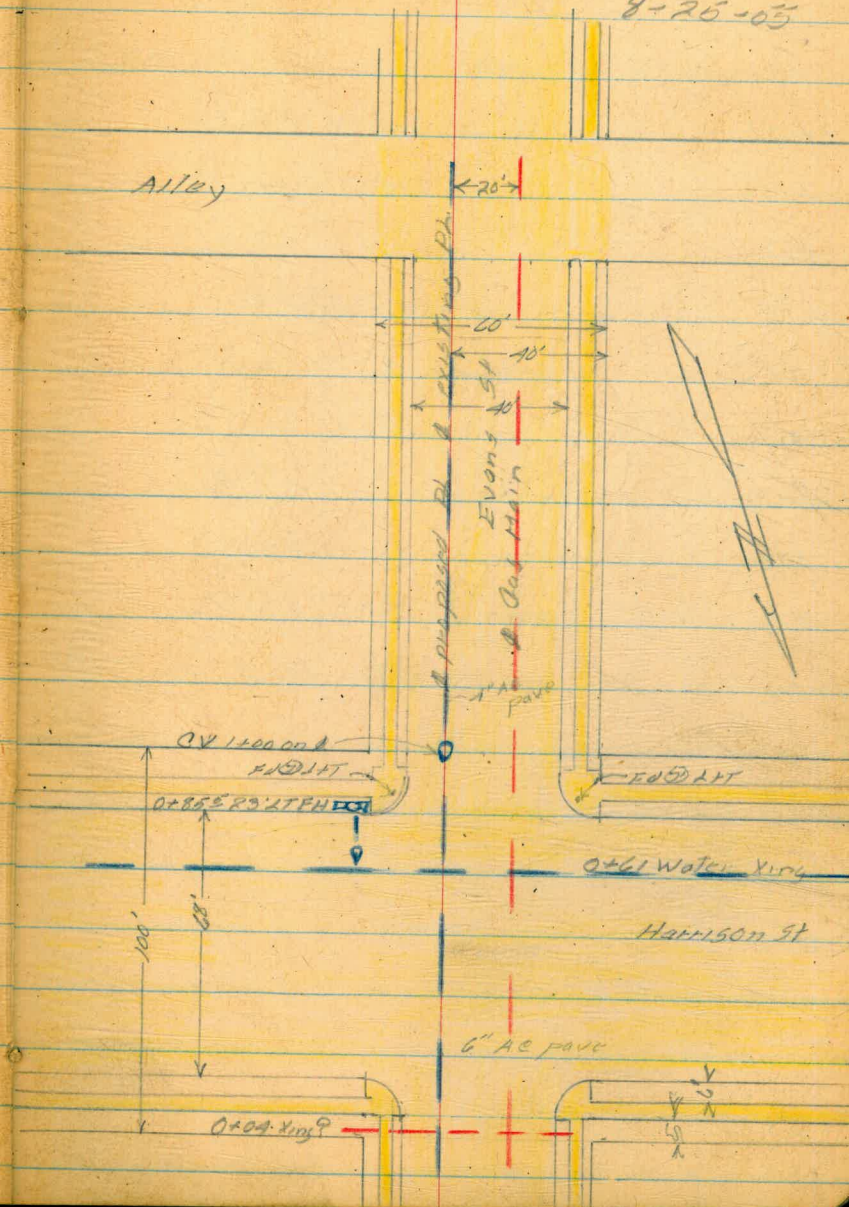 8-26-65
Alley
20'
60'
40'
40'
℄ proposed PL ℄ existing PL
Evans St
℄ Gas Main
4" AC
pave
CV 1+00 on ℄
0+61 Water Xing
Harrison St
100'
68'
6" AC pave
0+04 Xing